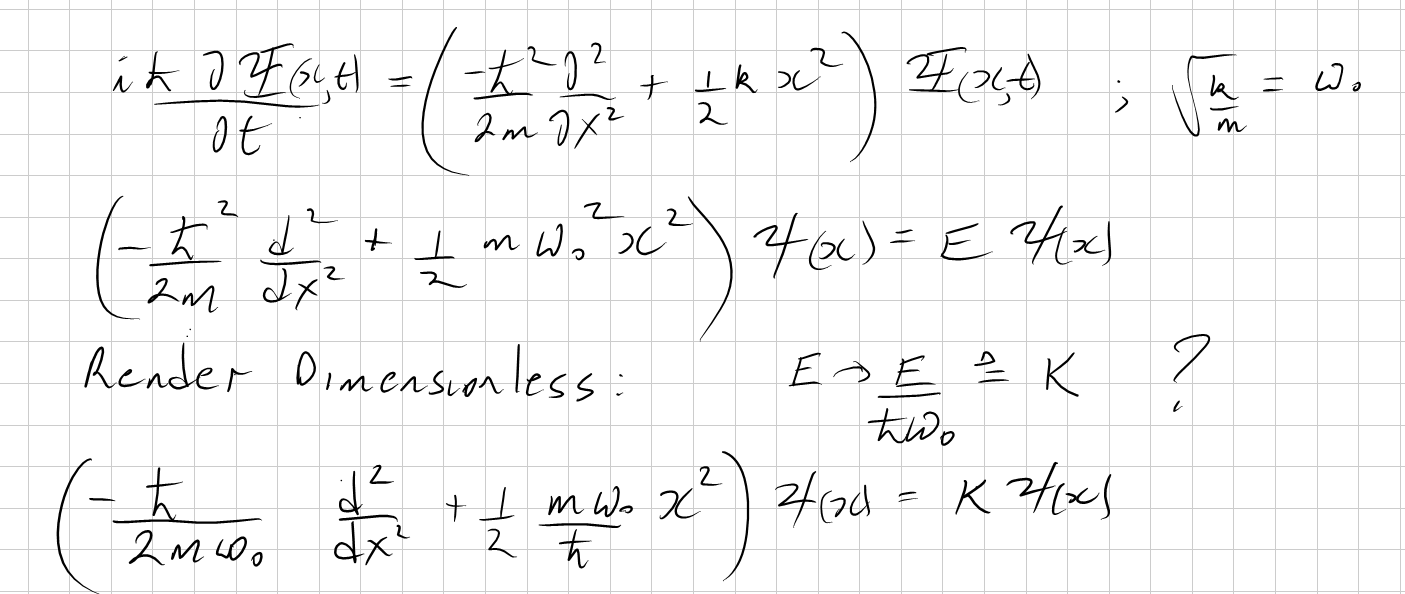 iħ ∂Ψ(x,t)/∂t = (-ħ²/2m ∂²/∂x² + 1/2 k x²) Ψ(x,t) ; √(k/m) = ω₀
(-ħ²/2m d²/dx² + 1/2 m ω₀² x²) ψ(x) = E ψ(x)
Render Dimensionless: E → E/ħω₀ ≙ K ?
(-ħ/2mω₀ d²/dx² + 1/2 mω₀/ħ x²) ψ(x) = K ψ(x)